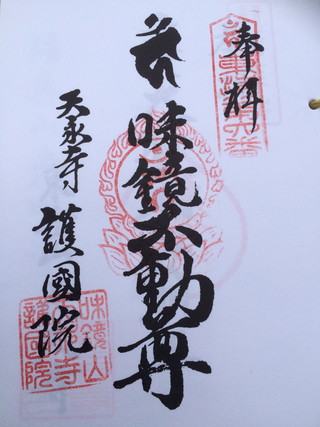 奉拝
味鏡不動尊
天永寺 護國院
味鏡山
天永寺
護國院